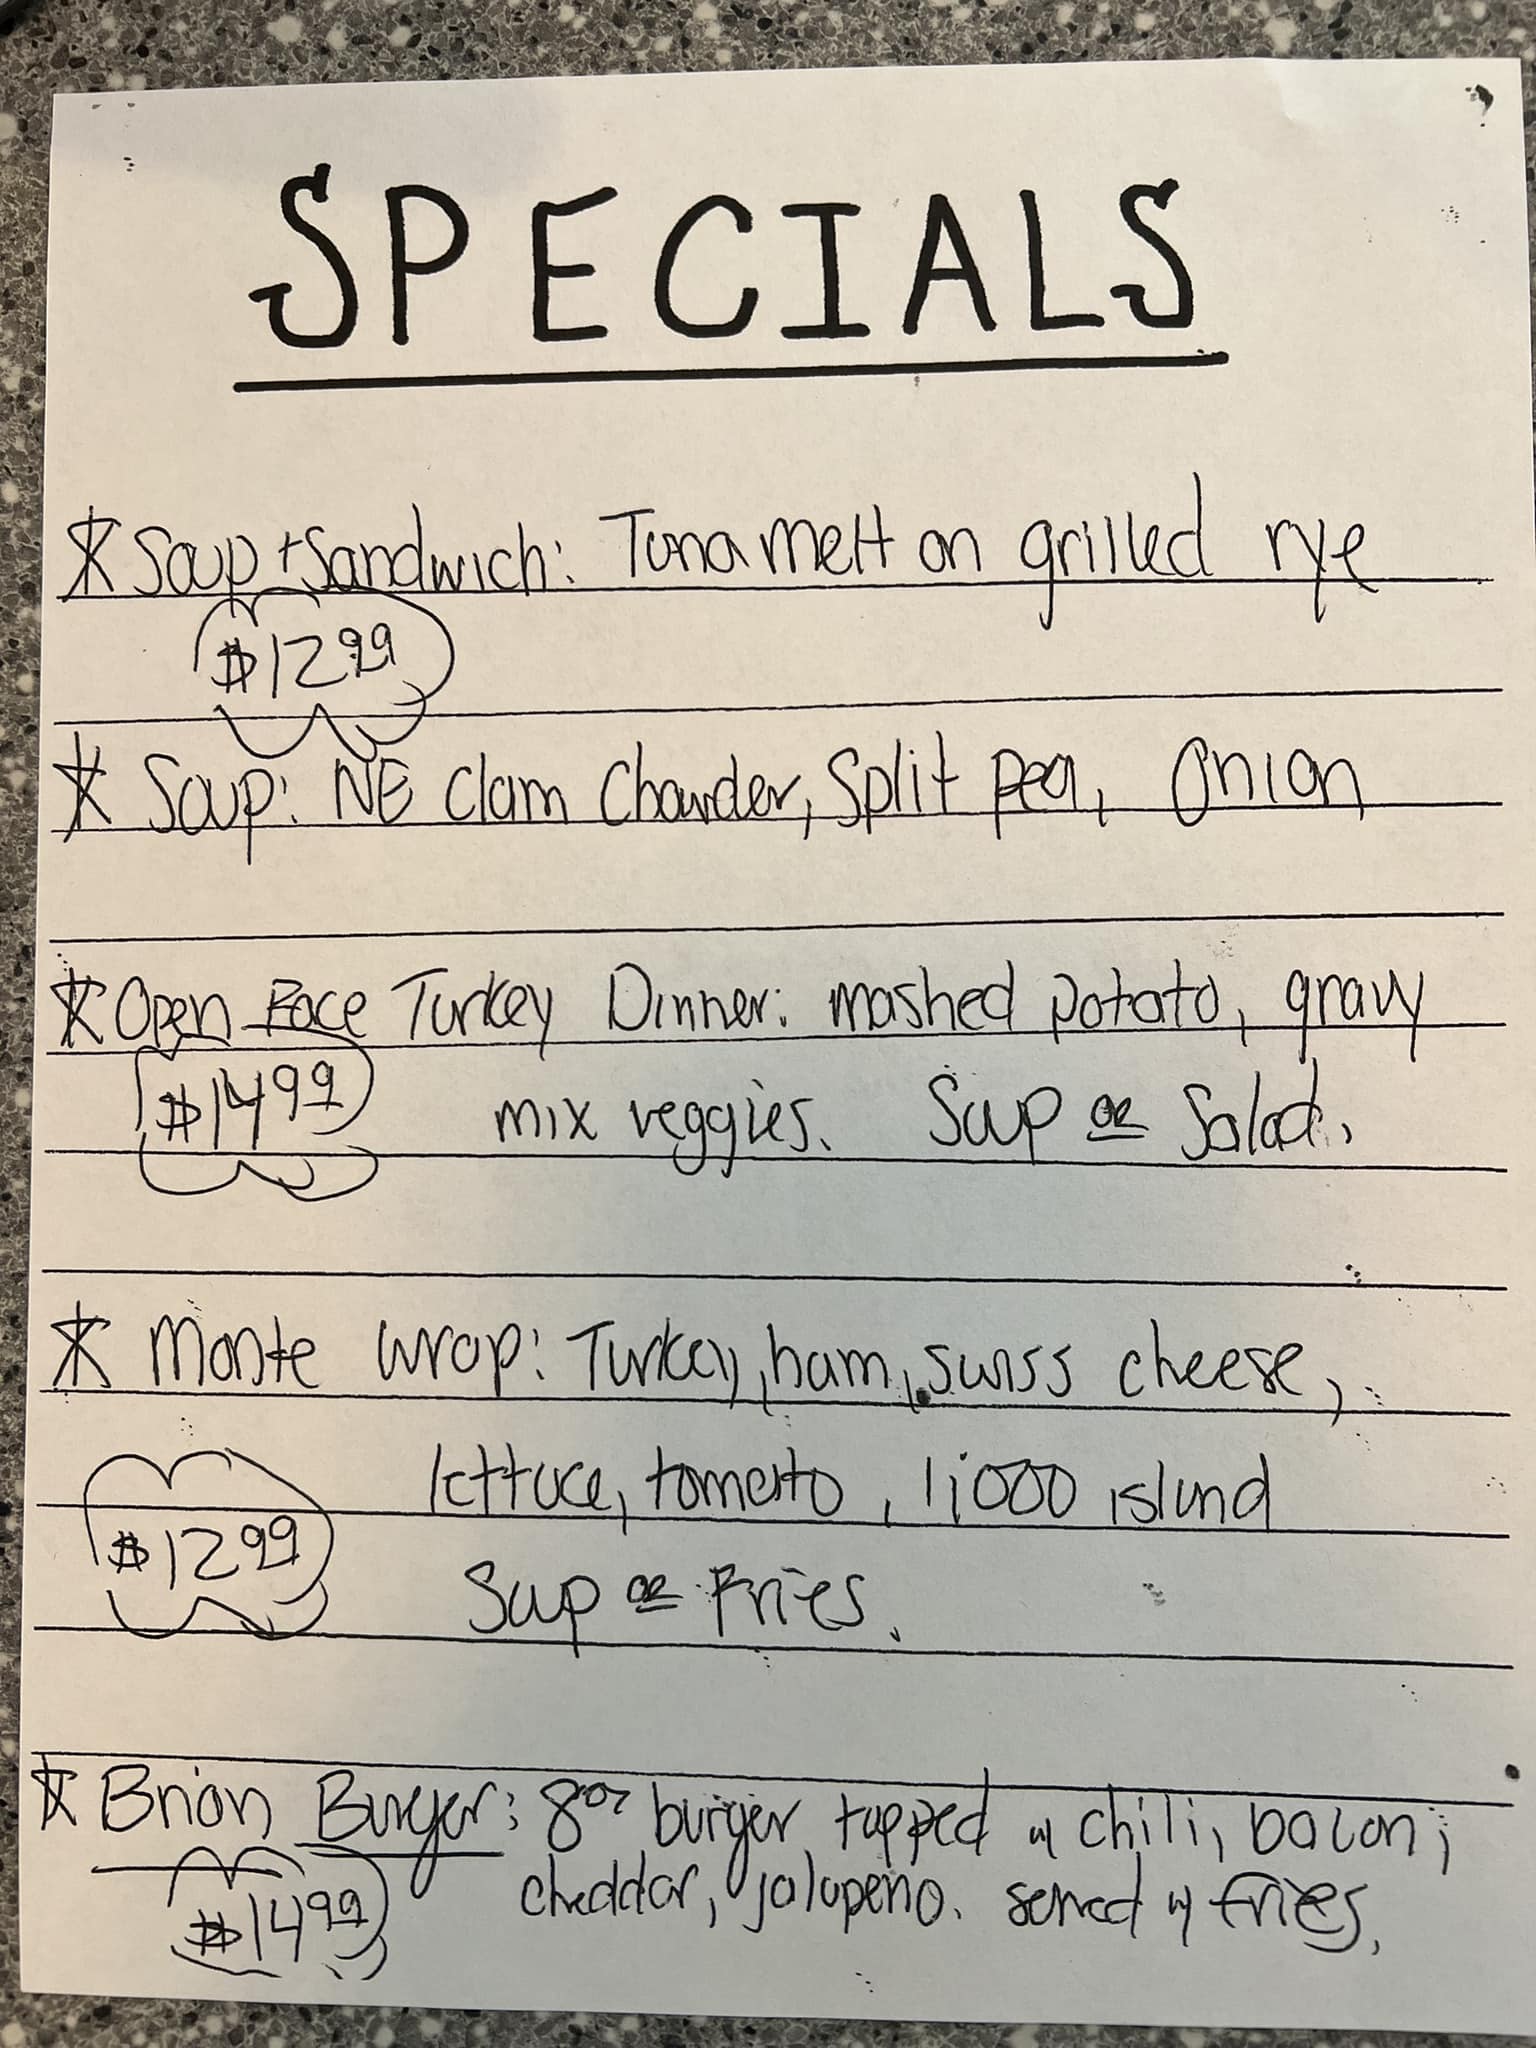 SPECIALS
* Soup + Sandwich: Tuna melt on grilled rye
$12.99
* Soup: NE Clam Chowder, Split pea, Onion
* Open Face Turkey Dinner: mashed potato, gravy
$14.99 mix veggies. Soup or Salad.
* Monte Wrap: Turkey, ham, swiss cheese,
lettuce, tomato, 1,000 island
$12.99
Soup or Fries.
* Brian Burger: 8oz burger topped w/ chili, bacon,
cheddar, jalapeno. served w/ fries.
$14.99